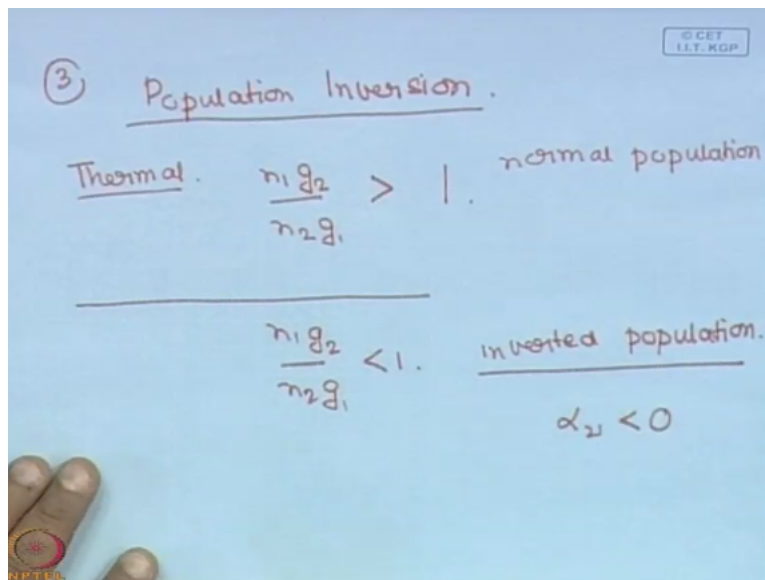 © CET
I.I.T. KGP
③ Population Inversion.
Thermal. n₁g₂ / n₂g₁ > 1. normal population
n₁g₂ / n₂g₁ < 1. inverted population.
α₂₁ < 0
NPTEL